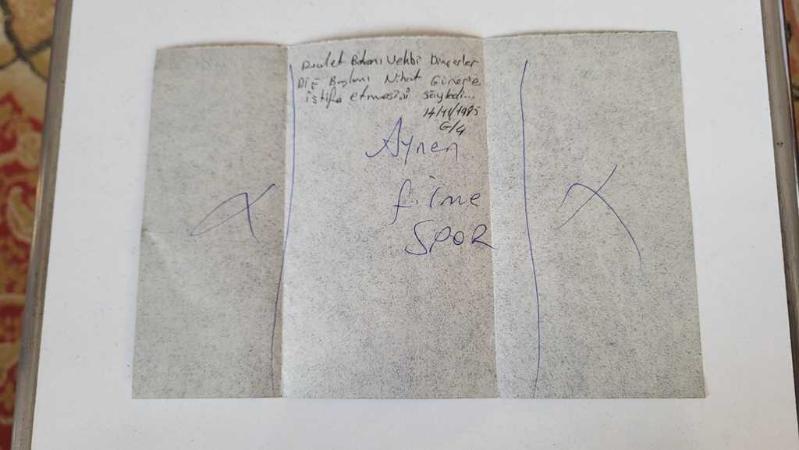 Devlet Bakanı Vehbi Dinçerler
DİE Başkanı Nihat Güner'e
istifa etmesini söyledi...
14/11/1985
G/G
Aynen
filme
SPOR